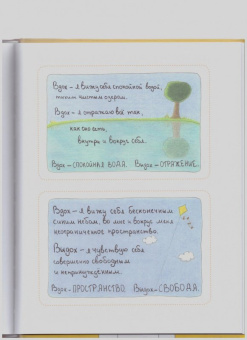 Вдох – я вижу себя спокойной водой,
тихим чистым озером.
Вдох – я отражаю всё так,
как оно есть,
внутри и вокруг себя.
Вдох – СПОКОЙНАЯ ВОДА. Выдох – ОТРАЖЕНИЕ.
Вдох – я вижу себя бесконечным
синим небом, во мне и вокруг меня
неограниченное пространство.
Выдох – я чувствую себя
совершенно свободным
и непринуждённым.
Вдох – ПРОСТРАНСТВО. Выдох – СВОБОДА.